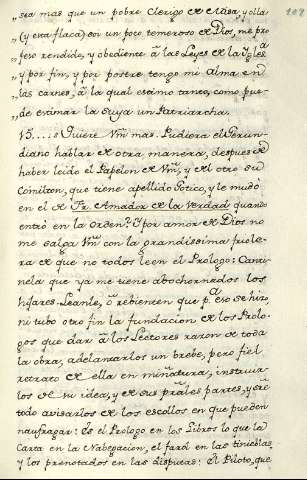 „sea mas que un pobre Clerigo de Misa, y olla
„(y esta flaca) con un poco temeroso de Dios, me pro
„feso rendido, y obediente à las Leyes de la Igles.ª
„y por fin, y por postre tengo mi Alma en
„las carnes, à la qual estimo tanto, como pue-
„de estimar la suya un Patriarcha.
15.... Quiere Vm mas. Pudiera el Gerun-
diano hablar de otra manera, despues de
haber leido el Papelon de Vm, y del otro su
Comilton, que tiene apellido Gotico, y le mudò
en el de Fr. Amador de la Verdad quando
entrò en la orden? Y por amor de Dios no
me salga Vm con la grandissima friole-
ra de que no todos leen el Prologo: Canti-
nela que ya me tiene abochornados los
hijares. Leanle, ò rebienten que p.ª eso se hizo,
ni tubo otro fin la fundacion de los Prolo-
gos que dar à los Lectores razon de toda
la obra, adelantarlos un brebe, pero fiel
retrato de ella en miniatura, instruir
los de su idea, y de sus prãles partes, y sre
todo avisarlos de los escollos en que pueden
naufragar: Es el Prologo en los Libros lo que la
Carta en la Nabegacion, el farol en las tinieblas
y los prenotados en las disputas: El Piloto, que